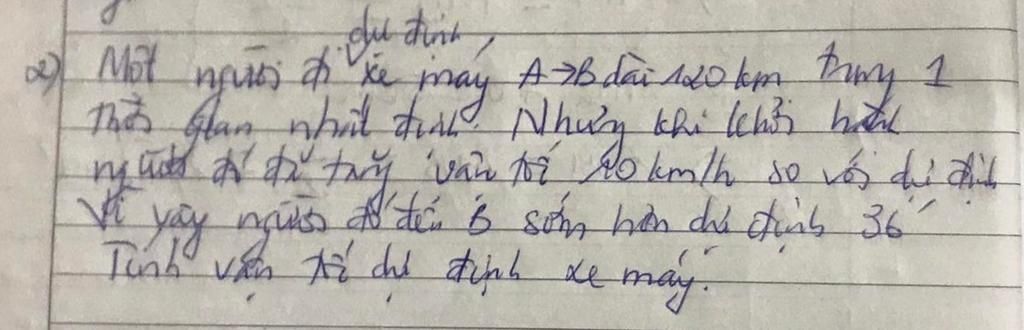 dự định
2) Một người đi xe máy A→B dài 120 km trong 1
thời gian nhất định. Nhưng khi khởi hành
người đó đã tăng vận tốc 10 km/h so với dự định
Vì vậy người đó đến B sớm hơn dự định 36'
Tính vận tốc dự định xe máy.